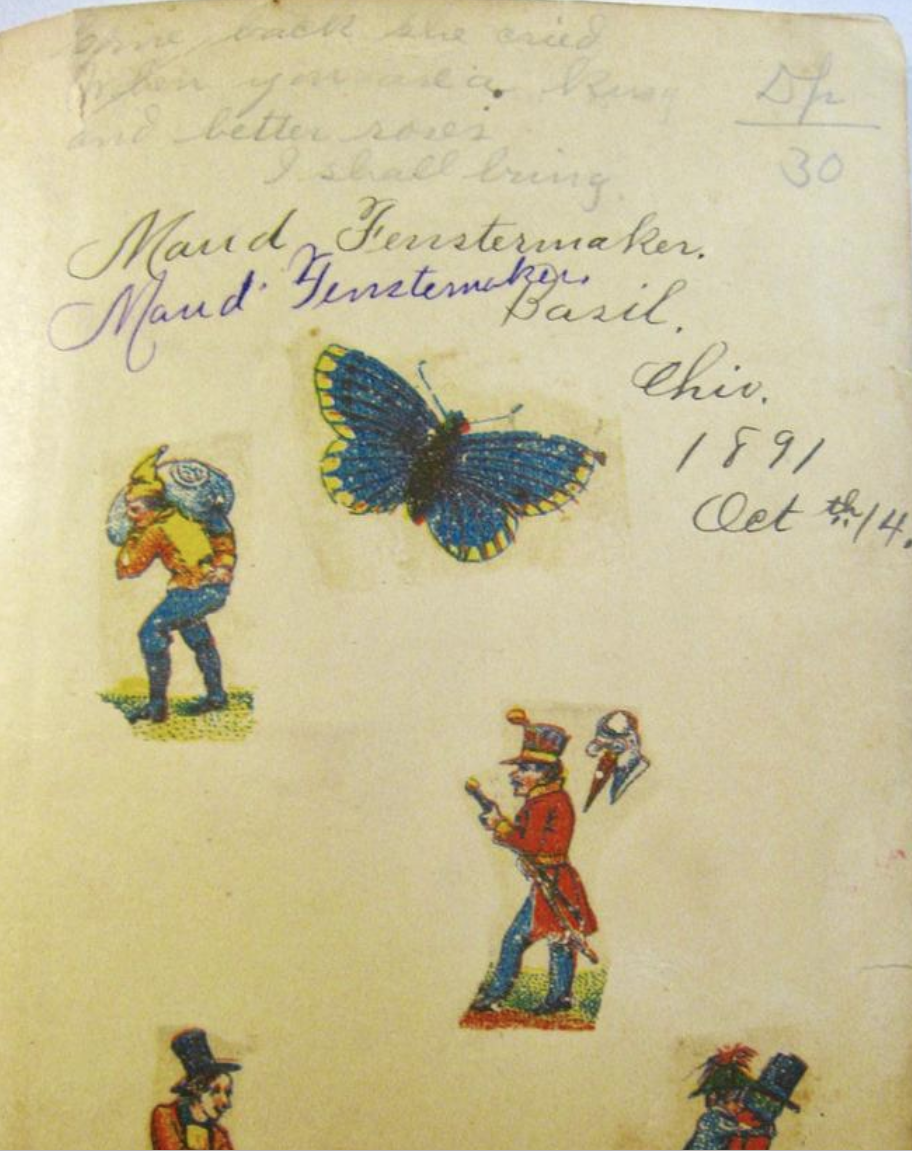 Come back she cried
When you are a King
and better roses
I shall bring.
30
Maud Fenstermaker.
Maud Fenstemaker.
Basil,
Ohio.
1891
Oct th 14.